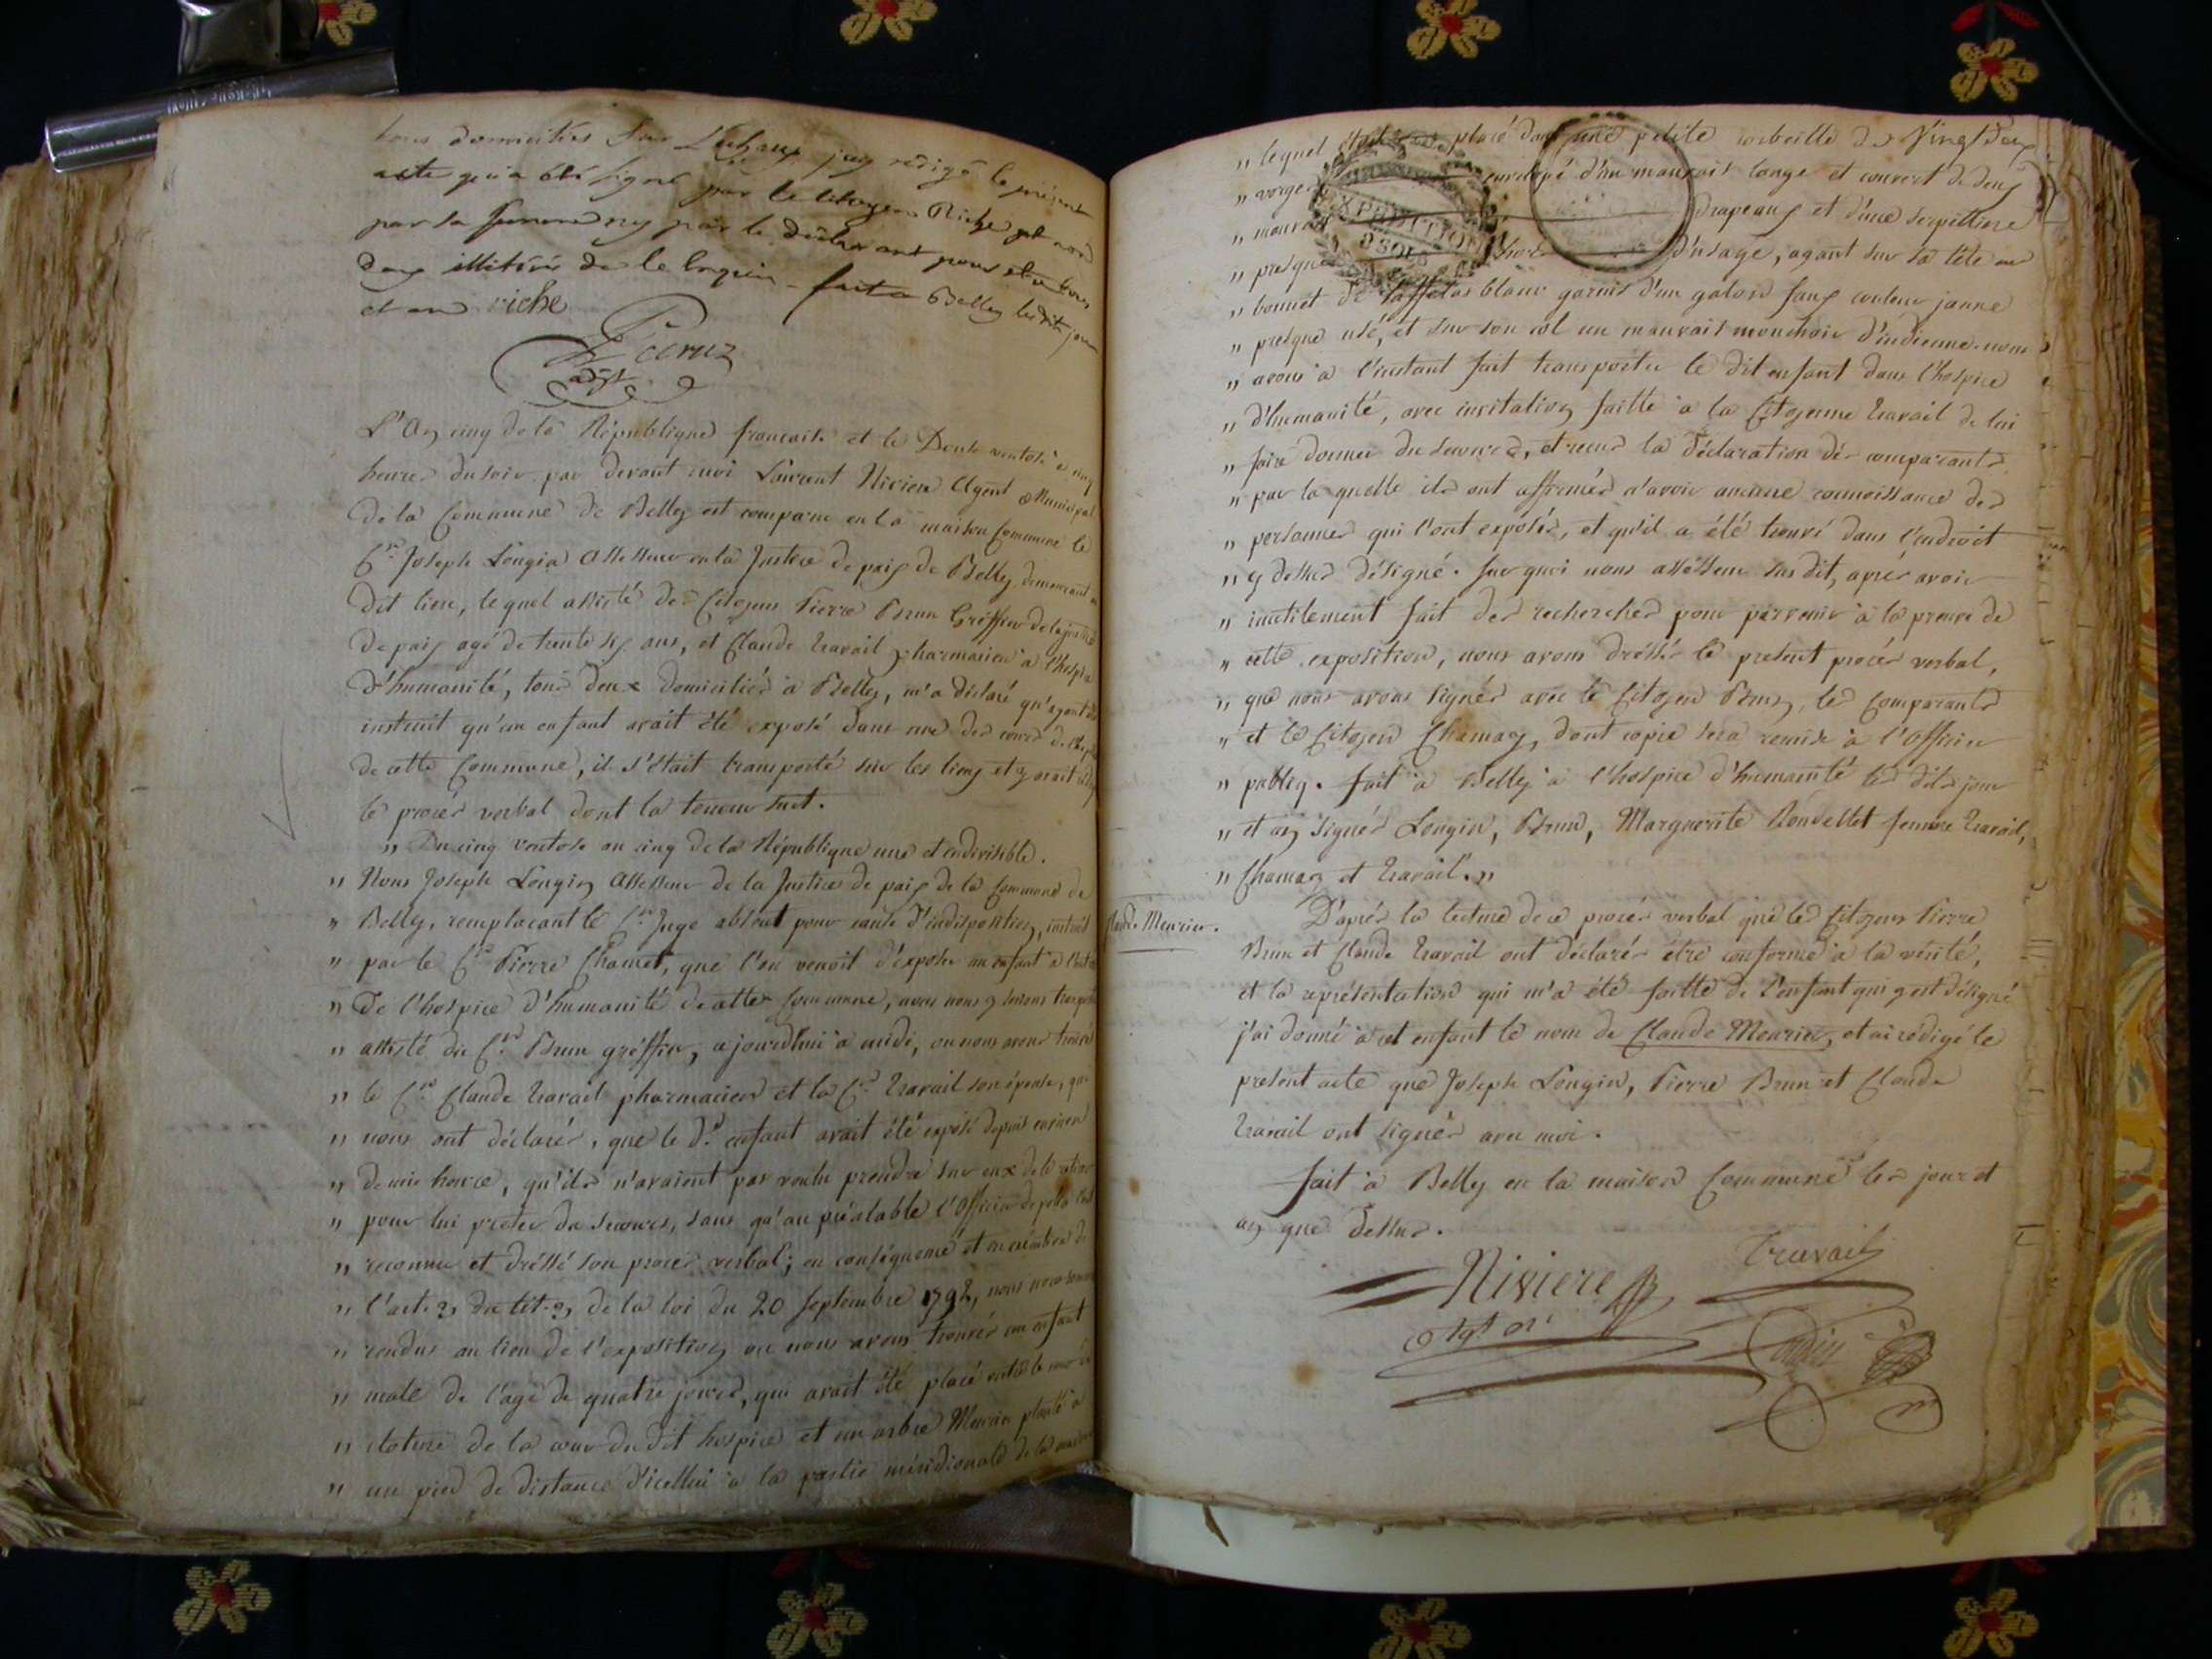 tous domiciliés Sur j'ay redigé le présent
acte qui a été signé par le Citoyen Riche et non
par sa femme ny par le déclarant pour etre tous
deux illitérés de le Enquis - fait a Belley lesdits jour
et an riche
L'An cinq de la République française et le Douze ventose a cinq
heures du soir par devant moi Laurent Riviere Agent Municipal
de la Commune de Belley est comparu en la maison Commune le
C.en Joseph Longin Assesseur en la Justice de paix de Belley demeurant au
dit lieu, lequel assisté des Citoyens Pierre Brun Gréffier de la justice
de paix agé de trente six ans, et Claude Travail pharmacien à l'hospice
d'humanité, tous deux domiciliés à Belley, m'a déclaré qu'ayant été
instruit qu'un enfant avait été exposé dans une des cours de l'hospice
de cette Commune, il s'était transporté sur les lieux et y avait rédigé
le procés verbal dont la teneur suit.
" Du cinq ventose an cinq de la République une et indivisible.
" Nous Joseph Longin Assesseur de la Justice de paix de la Commune de
" Belley, remplaçant le C.en Juge absent pour cause d'indisposition, instruit
" par le C.en Pierre Chamet, que l'on venoit d'exposer un enfant à
" De l'hospice d'humanité de cette Commune, nous nous y serions transporté
" assisté du C.en Brun gréffier, ajourdhui à midi, ou nous avons trouvé
" le C.en Claude Travail pharmacien et la C.ne Travail son épouse, qui
" nous ont déclarés, que le d.t enfant avait été exposé depuis environ
" demie heure, qu'ils n'avaient pas voulu prendre sur eux de le retirer
" pour lui preter du secours, sans qu'au préalable l'Officier de police l'eut
" reconnu et dréssé son procés verbal; en conséquence et en exécution de
" l'art. 9, du tit. 3, de la loi du 20 septembre 1792, nous nous sommes
" rendus au lieu de l'exposition ou nous avons trouvés un enfant
" male de l'age de quatre jours, qui avait été placé entre le mur de
" cloture de la cour du dit hospice et un arbre Meurier planté à
" un pied de distance d'icellui à la partie méridionale de la
" lequel était placé dans une petite corbeille de Vingt deux
" verges envelopé d'un mauvais lange et couvert de deux
" mauvais drapeaux et d'une serpilliere
" presque hors d'usage, ayant sur sa tête un
" bonnet de taffetas blanc garnis d'un galon faux couleur jaune
" presque usé, et sur son col un mauvais mouchoir d'indienne. nous
" avons à l'instant fait transporter le dit enfant dans l'hospice
" d'humanité, avec invitation faitte à la Citoyenne Travail de lui
" faire donner du secours, et recus la déclaration dés comparants
" par la quelle ils ont affirmés n'avoir aucune connoissance des
" personnes qui l'ont exposés, et qu'il a été trouvé dans l'endroit
" cy dessus désigné. Sur quoi nous assesseur sus dit, aprés avoir
" inutilement fait des recherches pour parvenir à la preuve de
" cette exposition, nous avons dréssés le present procés verbal,
" que nous avons signés avec le Citoyen Brun, les Comparants
" et le Citoyen Chamay, dont copie sera remise à l'Officier
" public. fait à Belley à l'hospice d'humanité les dits jour
" et an signés Longin, Brun, Marguerite Rondellet femme Travail,
" Chamay et Travail. "
Claude Meurier.
D'aprés la lecture de ce procés verbal que les Citoyens Pierre
Brun et Claude Travail ont déclarés étre conforme à la vérité,
et la représentation qui m'a été faitte de l'enfant qui y est désigné
j'ai donné à cet enfant le nom de Claude Meurier, et ai rédigé le
présent acte que Joseph Longin, Pierre Brun et Claude
Travail ont signés avec moi.
fait à Belley en la maison Commune les jour et
an que dessus.
Travail
Riviere
agt